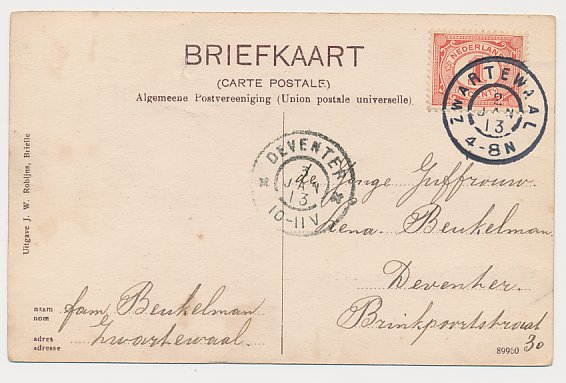 BRIEFKAART
(CARTE POSTALE)
Algemeene Postvereeniging (Union postale universelle).
NEDERLAND
ZWARTEWAAL
2
JAN
13
4-8N
DEVENTER
3
JAN
13
10-11V
de jonge Juffrouw
Lena. Beukelman
Deventer.
Brinkpoortstraat
30
Uitgave J. W. Robijns, Brielle
naam
nom
fam Beukelman
adres
adresse
Zwartewaal.
89960